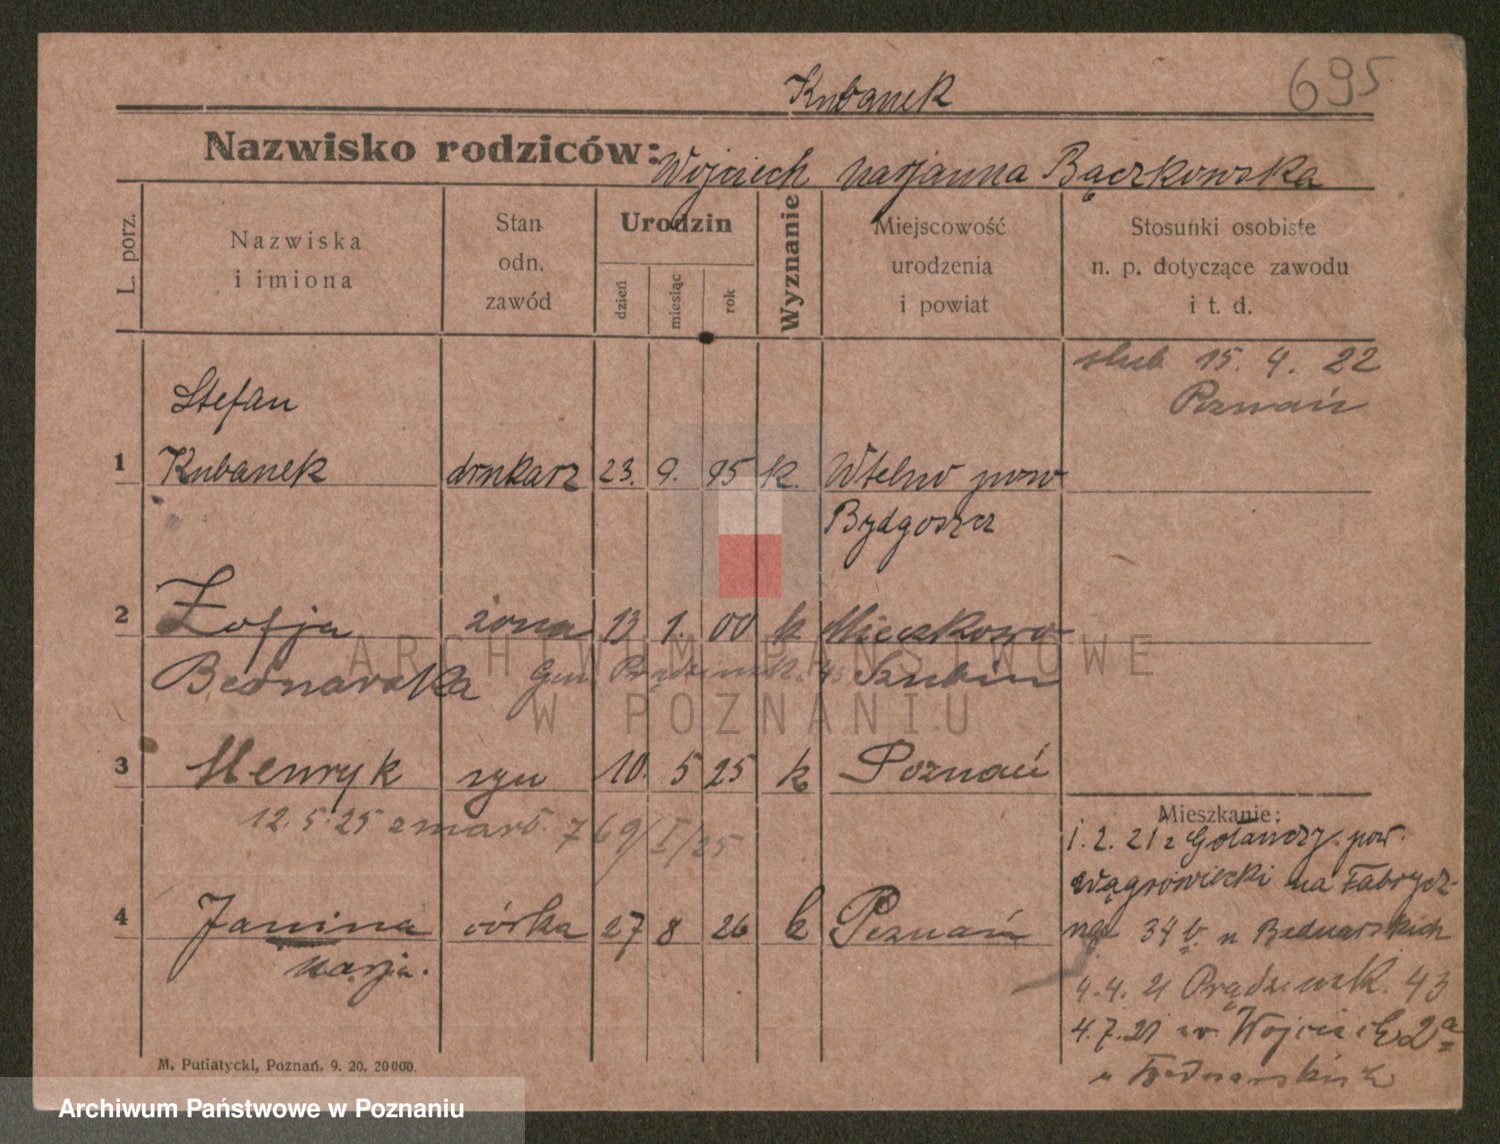 Kubanek 695
Nazwisko rodziców: Wojciech Marjanna Bączkowska
L. porz.
Nazwiska i imiona
Stan odn. zawód
Urodzin
dzień miesiąc rok
Wyznanie
Miejscowość urodzenia i powiat
Stosunki osobiste n. p. dotyczące zawodu i t. d.
ślub 15. 4. 22
Poznań
Stefan
1 Kubanek drukarz 23. 9. 95 k. Wtelno pow
Bydgoszcz
2 Zofja żona 13 1. 00 k Mieczkowo
Bednarska Gen. Prądzyńsk. 43 Szubin
3 Henryk syn 10. 5 25 k Poznań
12. 5. 25 zmarł. 769/I/25
4 Janina córka 27 8 26 k Poznań
Marja.
Mieszkanie:
1. 2. 21 z Gołańczy pow.
Wągrowiecki na Fabrycz-
na 34 b. u Bednarskich
4. 4. 21 Prądzyńsk. 43
4. 7. 21 św. Wojciech 2a
u Bednarskich
M. Putiatycki, Poznań. 9. 20. 20000.
ARCHIWUM PAŃSTWOWE
W POZNANIU
Archiwum Państwowe w Poznaniu